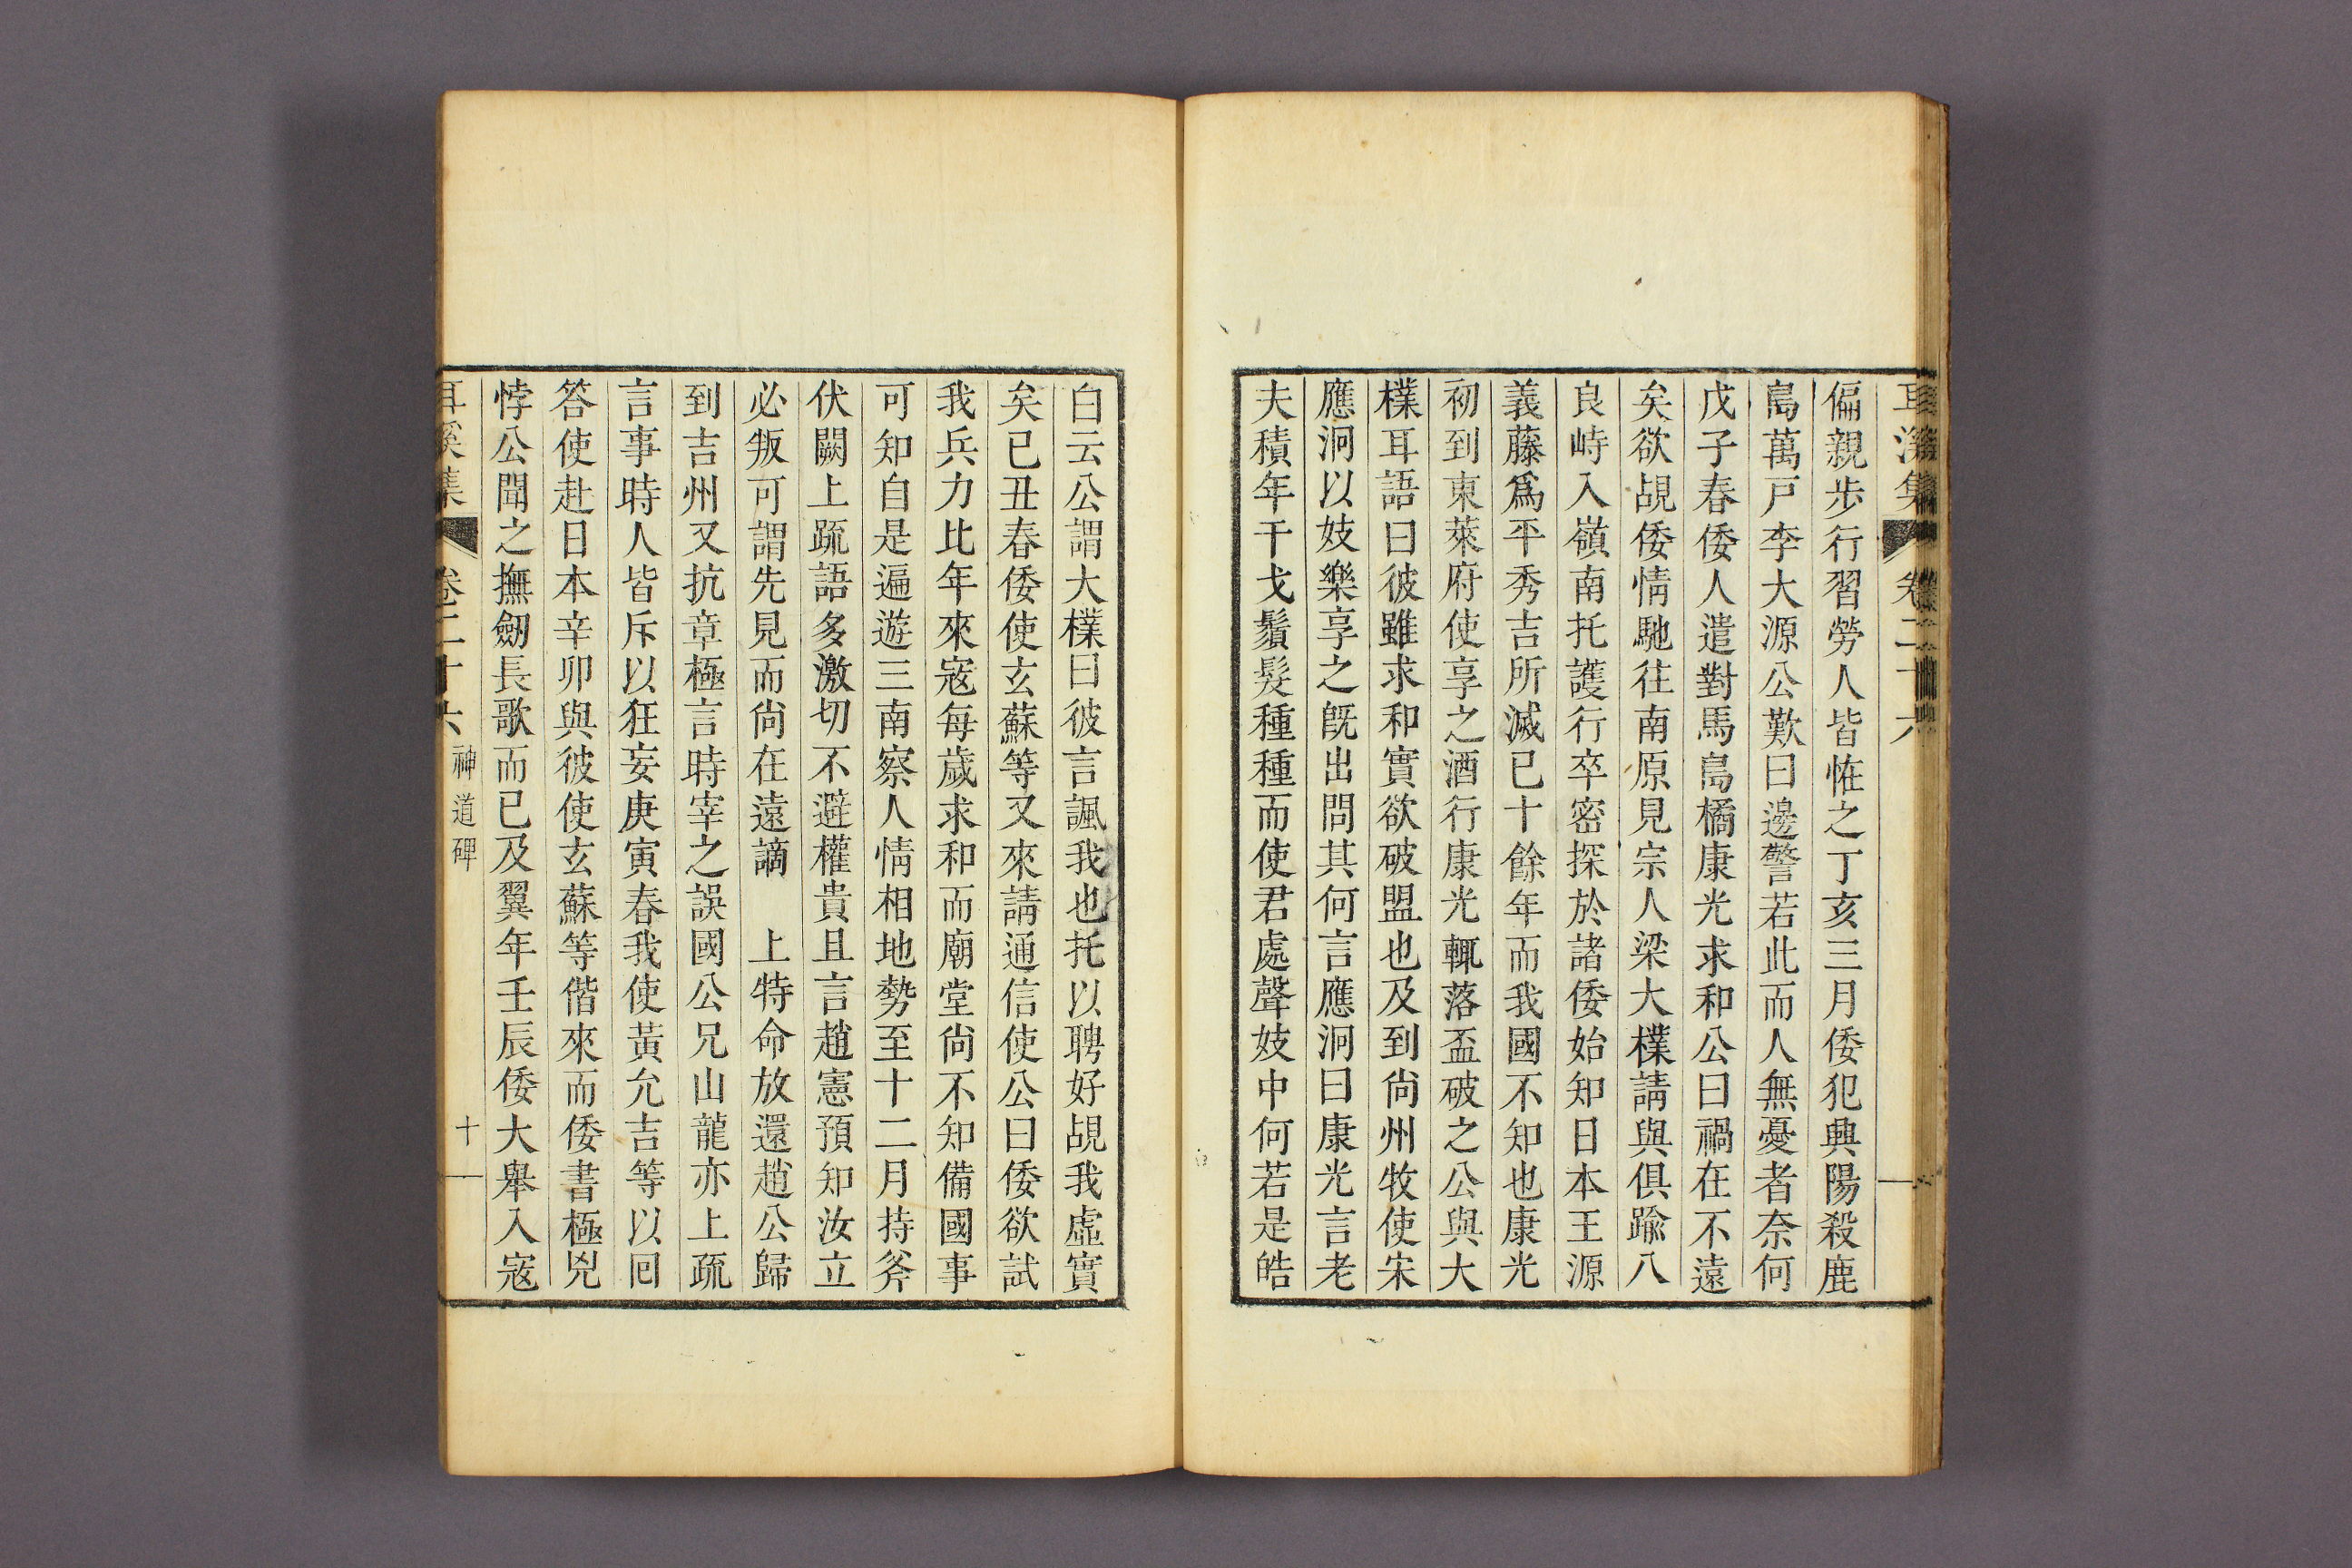 耳溪集 卷二十六
偏親步行習勞人皆恠之丁亥三月倭犯興陽殺鹿
島萬戶李大源公歎曰邊警若此而人無憂者奈何
戊子春倭人遣對馬島橘康光求和公曰禍在不遠
矣欲覘倭情馳往南原見宗人梁大樸請與俱踰八
良峙入嶺南托護行卒密探於諸倭始知日本王源
義藤爲平秀吉所滅已十餘年而我國不知也康光
初到東萊府使享之酒行康光輒落盃破之公與大
樸耳語曰彼雖求和實欲破盟也及到尙州牧使宋
應泂以妓樂享之旣出問其何言應泂曰康光言老
夫積年干戈鬚髮種種而使君處聲妓中何若是皓
白云公謂大樸曰彼言諷我也托以聘好覘我虛實
矣已丑春倭使玄蘇等又來請通信使公曰倭欲試
我兵力比年來寇每歲求和而廟堂尙不知備國事
可知自是遍遊三南察人情相地勢至十二月持斧
伏闕上疏語多激切不避權貴且言趙憲預知汝立
必叛可謂先見而尙在遠謫　上特命放還趙公歸
到吉州又抗章極言時宰之誤國公兄山龍亦上疏
言事時人皆斥以狂妄庚寅春我使黃允吉等以回
答使赴日本辛卯與彼使玄蘇等偕來而倭書極兇
悖公聞之撫劒長歌而已及翼年壬辰倭大舉入寇
耳溪集 卷二十六 神道碑 十